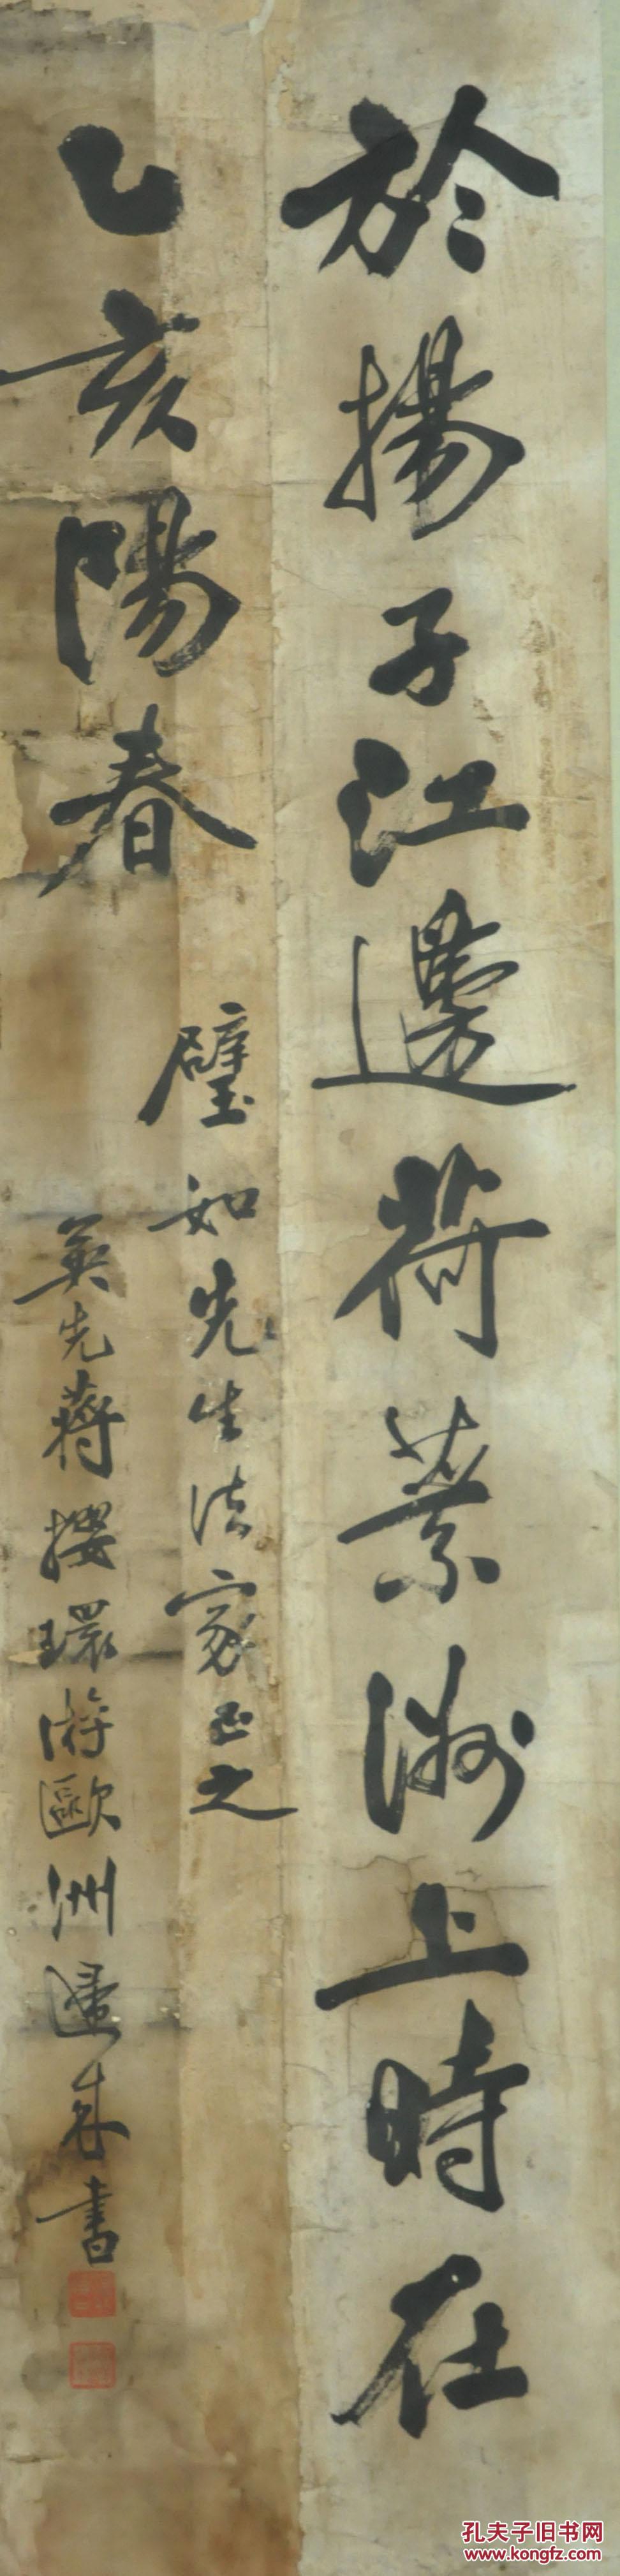 於揚子江邊荷葉洲上時在
乙亥陽春
璧如先生法家正之
英先蔣攖環游歐洲還來書
孔夫子旧书网
www.kongfz.com